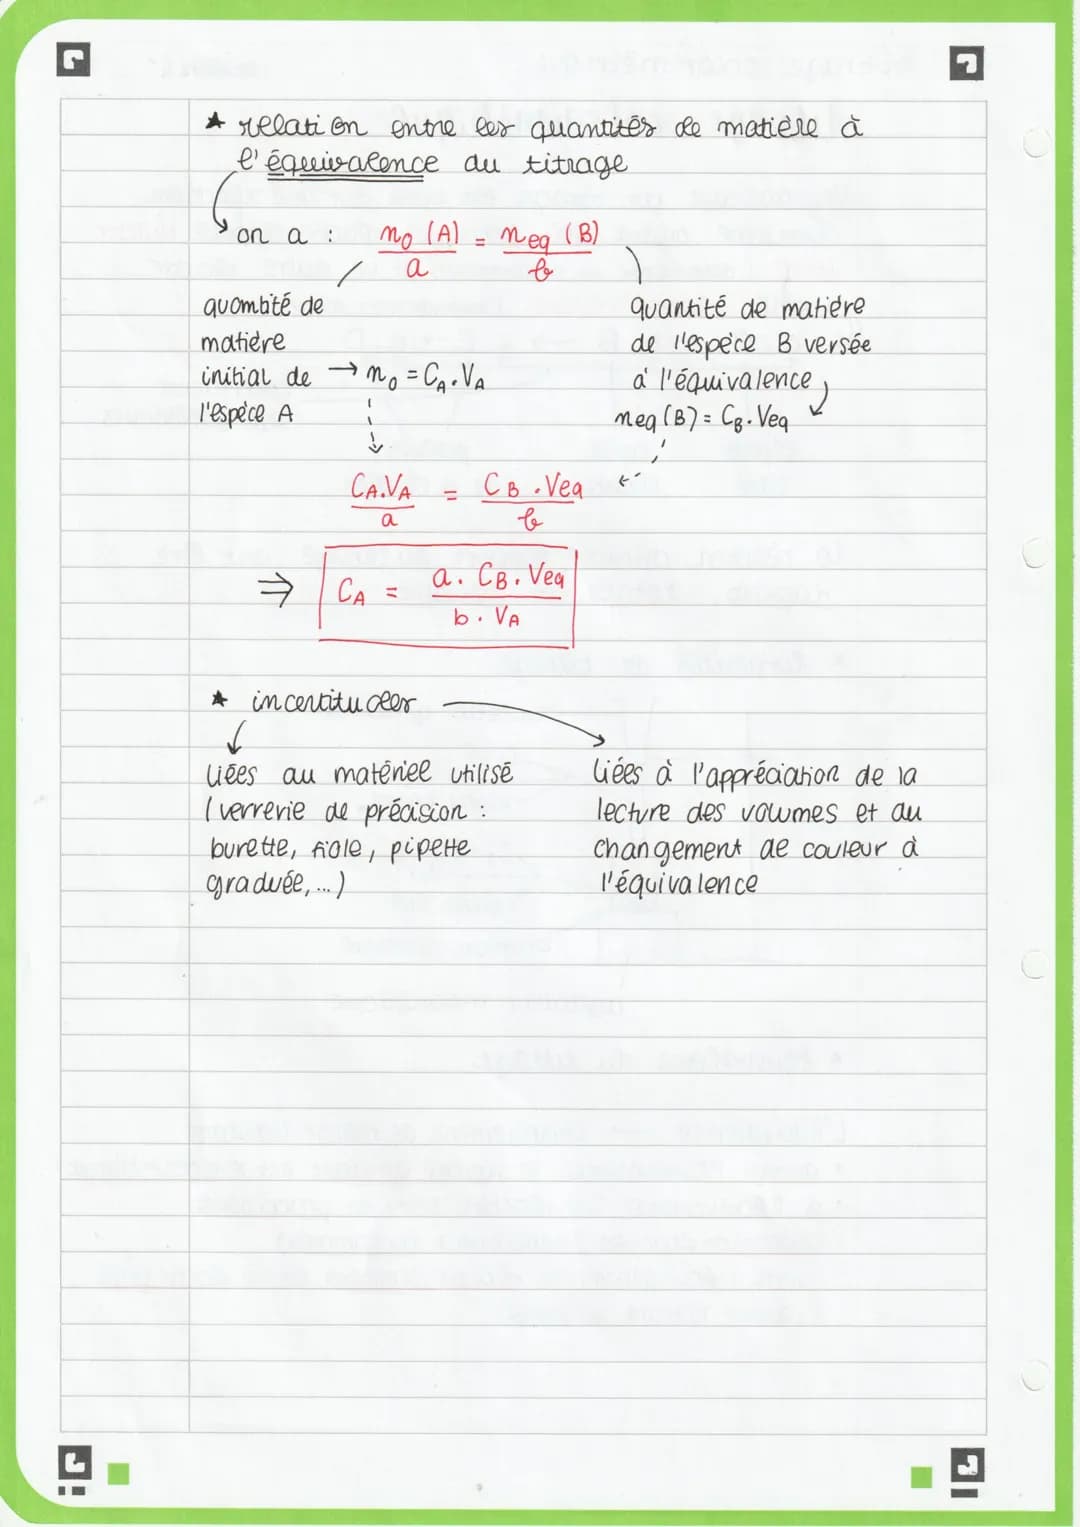 ★ relation entre les quantités de matière à
l'équivalence du titrage
on a : n₀ (A) / a = neq (B) / b
quombité de
matière
initial de → n₀ = CA . VA
l'espèce A
quantité de matière
de l'espèce B versée
à l'équivalence
neq (B) = CB . Veq
CA.VA / a = CB . Veq / b
⇒ CA = a . CB . Veq / b . VA
★ incertitudes
liées au matériel utilisé
(verrerie de précision :
burette, fiole, pipette
graduée, ...)
liées à l'appréciation de la
lecture des volumes et au
changement de couleur à
l'équivalence